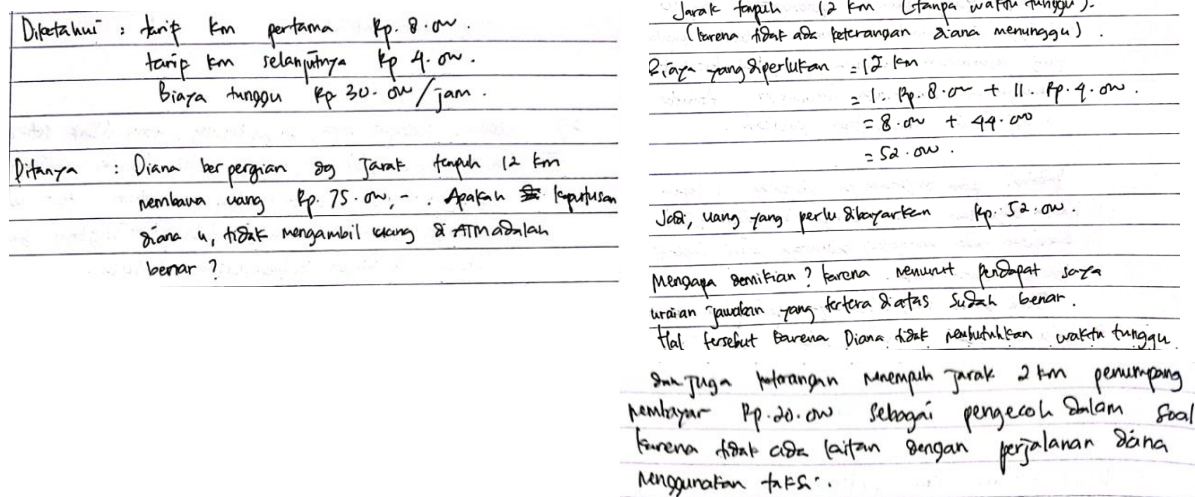 Diketahui : tarif km pertama Rp. 8.000.
tarif km selanjutnya Rp 4.000.
Biaya tunggu Rp 30.000/jam.
Ditanya : Diana berpergian dg jarak tempuh 12 km
membawa uang Rp. 75.000,-. Apakah keputusan
diana u, tidak mengambil uang di ATM adalah
benar?
Jarak tempuh 12 km (tanpa waktu tunggu).
(karena tidak ada keterangan diana menunggu).
Biaya yang diperlukan = 12 km
= 1. Rp. 8.000 + 11. Rp. 4.000.
= 8.000 + 44.000
= 52.000.
Jadi, uang yang perlu dibayarkan Rp. 52.000.
Mengapa demikian? karena menurut pendapat saya
uraian jawaban yang tertera diatas sudah benar.
Hal tersebut karena Diana tidak membutuhkan waktu tunggu
dan juga keterangan menempuh jarak 2 km penumpang
membayar Rp. 20.000 sebagai pengecoh dalam soal
karena tidak ada kaitan dengan perjalanan diana
menggunakan taksi.